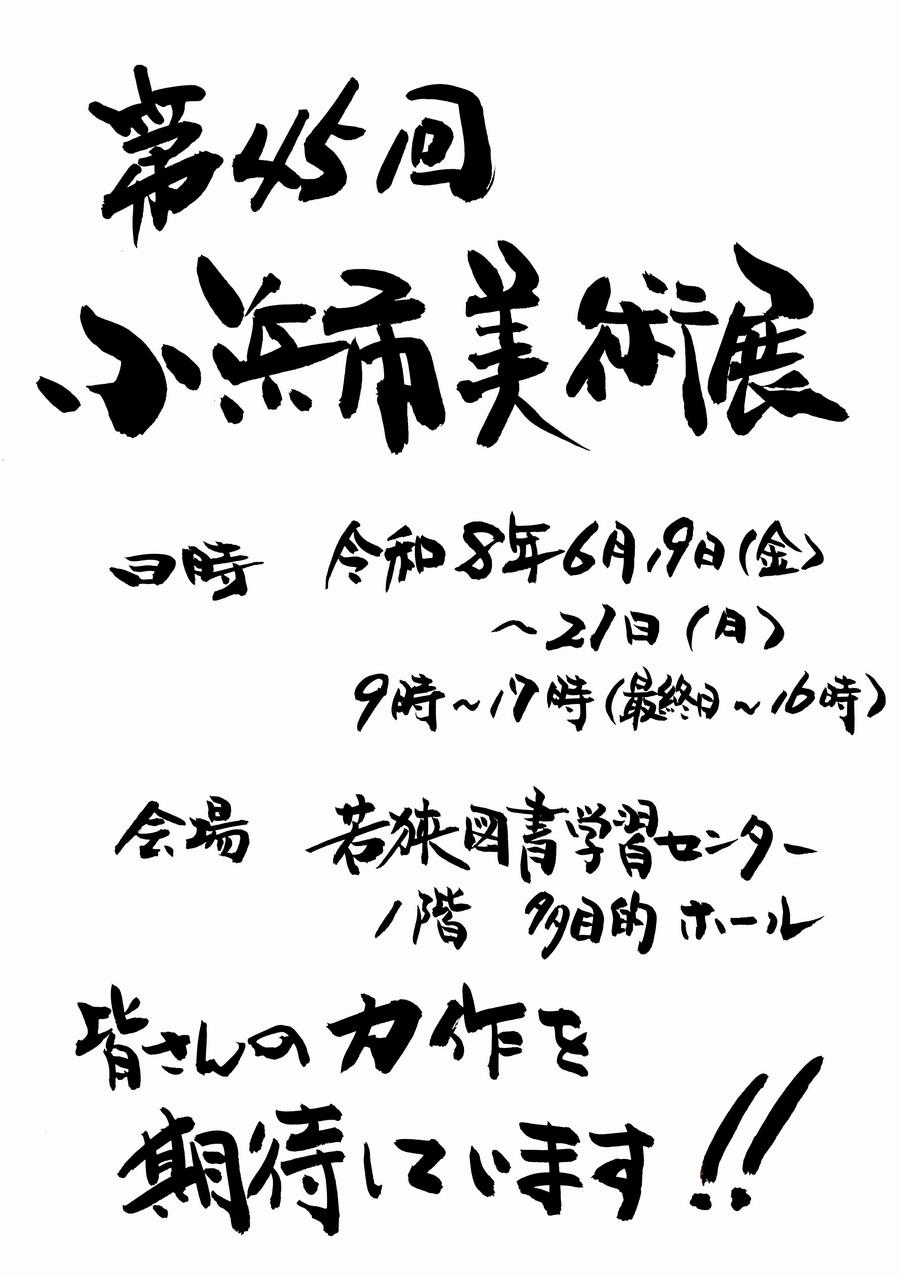 第45回
小浜市美術展
日時 令和8年6月19日(金)
～21日(月)
9時～17時(最終日～16時)
会場 若狭図書学習センター
1階 多目的ホール
皆さんの力作を
期待しています!!